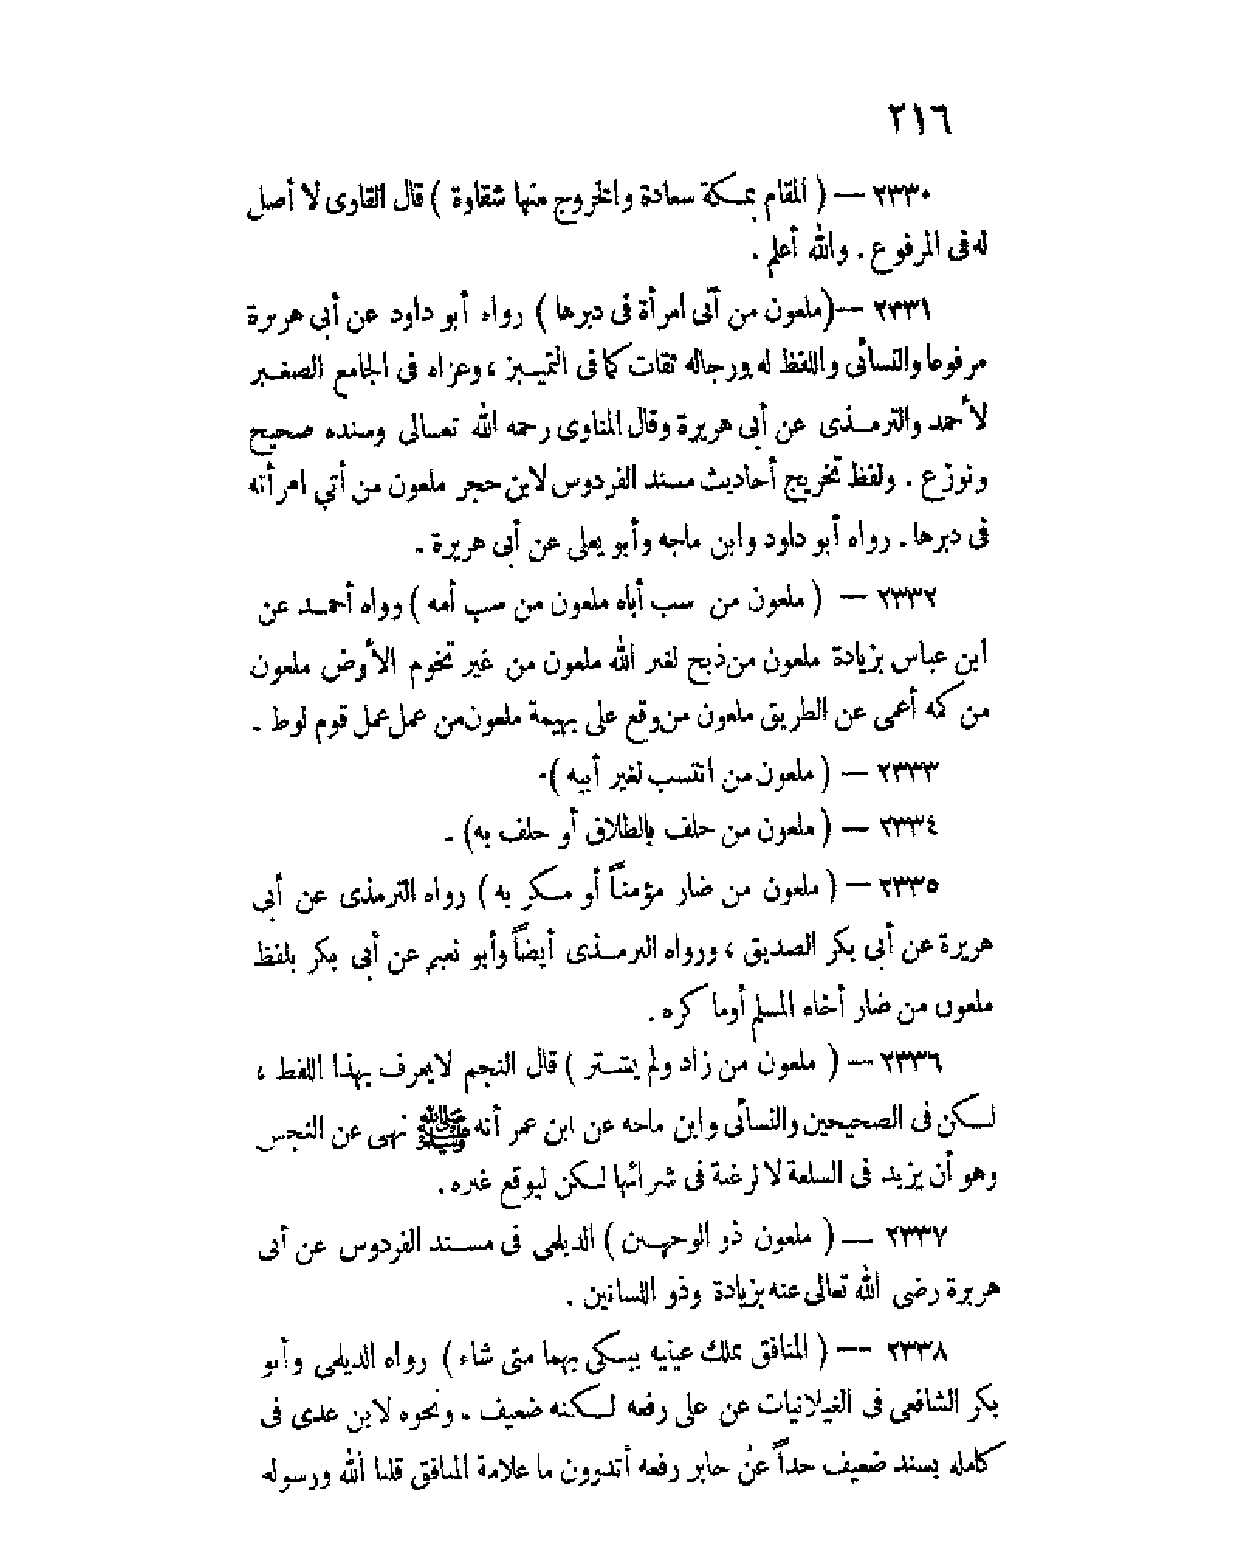 ٢١٦
٢٣٣٠ — ( المقام بمكة سعادة والخروج منها شقاوة ) قال القاوى لا أصل
له فى المرفوع . والله أعلم .
٢٣٣١ — (ملعون من آتى امرأة فى دبرها ) رواه أبو داود عن أبي هريرة
مرفوعا والنسائى واللفظ له ورجاله ثقات كما فى التمييز ، وعزاه فى الجامع الصغير
لأحمد والترمذى عن أبى هريرة وقال المناوى رحمه الله تعالى وسنده صحيح
ونوزع . ولفظ تخريج أحاديث مسند الفردوس لابن حجر ملعون من أتي امرأته
فى دبرها . رواه أبو داود وابن ماجه وأبو يعلى عن أبى هريرة .
٢٣٣٢ — ( ملعون من سب أباه ملعون من سب أمه ) رواه أحمد عن
ابن عباس بزيادة ملعون من ذبح لغير الله ملعون من غير تخوم الأرض ملعون
من كمه أعمى عن الطريق ملعون من وقع على بهيمة ملعون من عمل عمل قوم لوط .
٢٣٣٣ — ( ملعون من انتسب لغير أبيه ).
٢٣٣٤ — ( ملعون من حلف بالطلاق أو حلف به) .
٢٣٣٥ — ( ملعون من ضار مؤمناً أو مكر به ) رواه الترمذى عن أبى
هريرة عن أبى بكر الصديق ، ورواه الترمذى أيضاً وأبو نعيم عن أبى بكر بلفظ
ملعون من ضار أخاه المسلم أو ما كره .
٢٣٣٦ — ( ملعون من زاد ولم يشتر ) قال النجم لا يعرف بهذا اللفظ ،
لكن فى الصحيحين والنسائى وابن ماجه عن ابن عمر أنه ﷺ نهى عن النجس
وهو أن يزيد فى السلعة لا لرغبة فى شرائها لكن ليوقع غيره .
٢٣٣٧ — ( ملعون ذو الوجهين ) الديلمى فى مسند الفردوس عن أبى
هريرة رضى الله تعالى عنه بزيادة وذو اللسانين .
٢٣٣٨ — ( المنافق يملك عينيه يبكى بهما متى شاء ) رواه الديلمى وأبو
بكر الشافعى فى الغيلانيات عن على رفعه لكنه ضعيف . ونحوه لابن عدى فى
كامله بسند ضعيف جداً عن جابر رفعه أتدرون ما علامة المنافق قلنا الله ورسوله